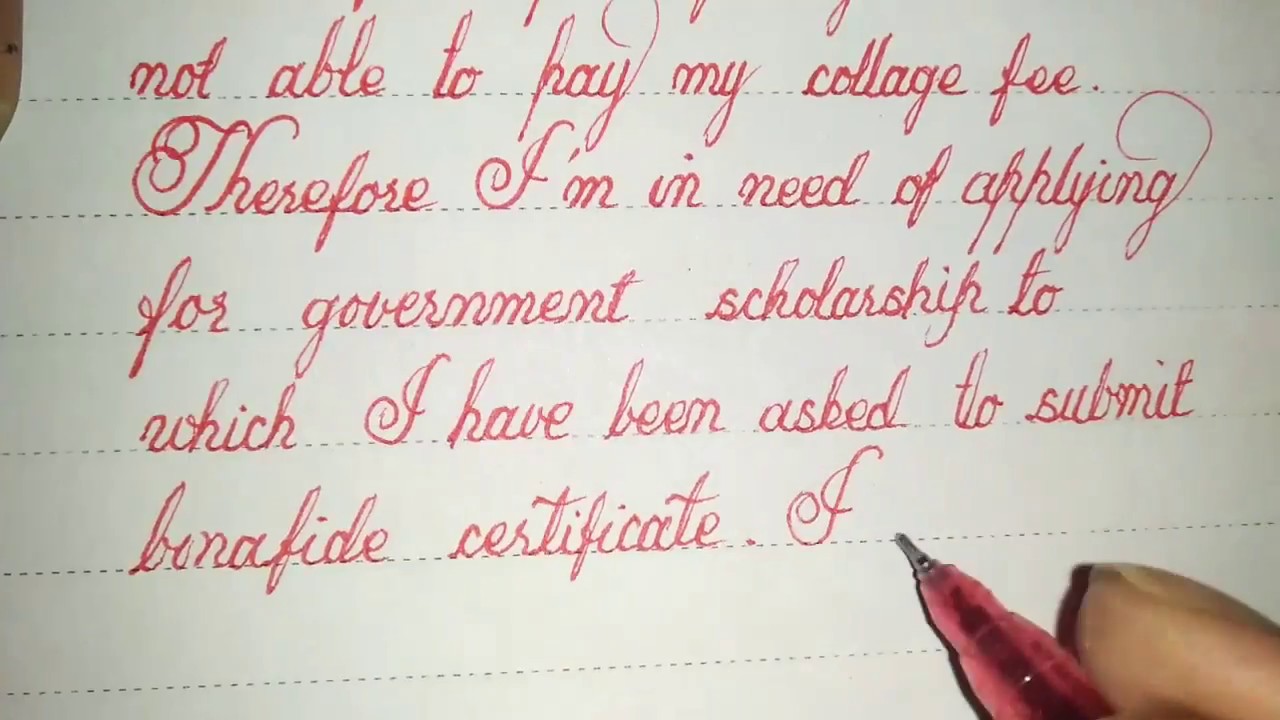 not able to pay my collage fee.
Therefore I'm in need of applying
for government scholarship to
which I have been asked to submit
bonafide certificate. I